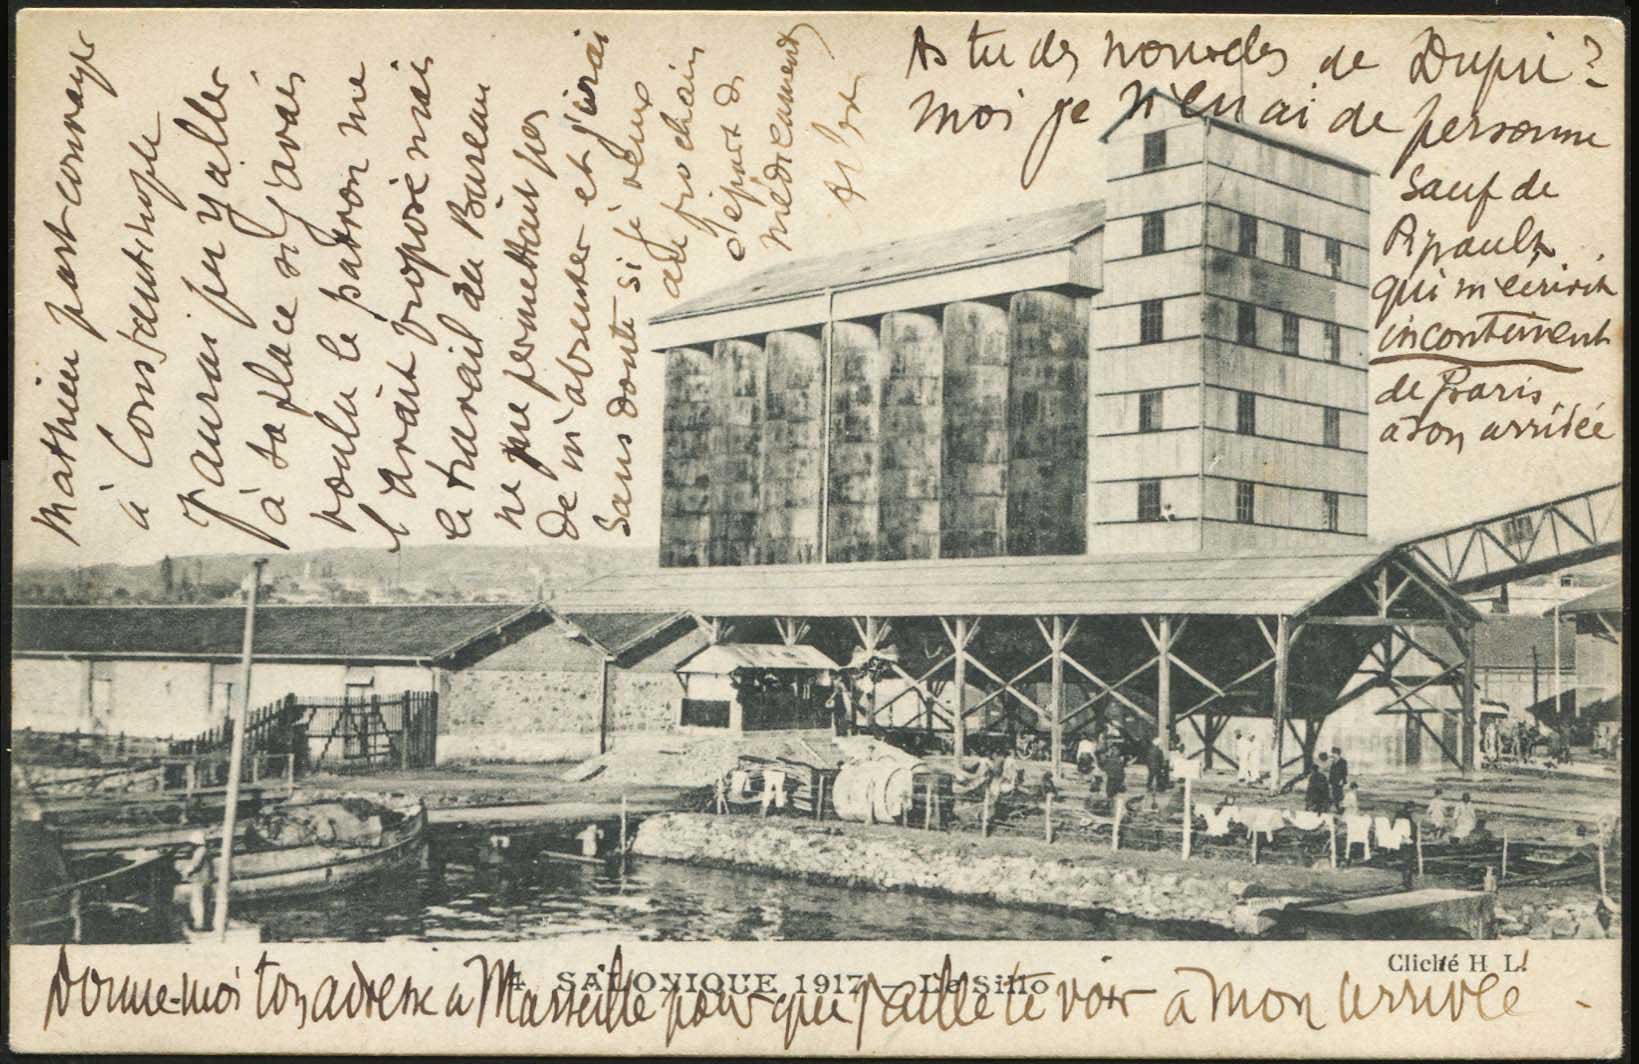 Mathieu part convoyer
à Constantinople
J'aurai pu y aller
à sa place si j'avais
voulu le patron me
l'avait proposé mais
le travail du Bureau
ne me permettait pas
de m'absenter et j'irai
sans doute si je veux
au prochain
départ de
médicaments
As tu des nouvelles de Dupri?
moi je n'en ai de personne
Sauf de
qui m'écrivit
incontinent
de Paris
à son arrivée
4. SALONIQUE 1917 – Le Silho
Cliché H L.
Donne-moi ton adresse à Marseille pour que j'aille te voir à mon arrivée -